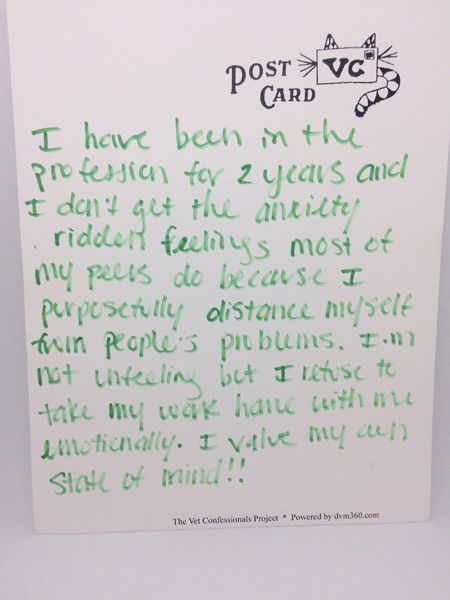 POST
CARD
VC
I have been in the
profession for 2 years and
I don't get the anxiety
ridden feelings most of
my peers do because I
purposefully distance myself
from people's problems. I'm
not unfeeling but I refuse to
take my work home with me
emotionally. I value my own
state of mind!!
The Vet Confessionals Project * Powered by dvm360.com